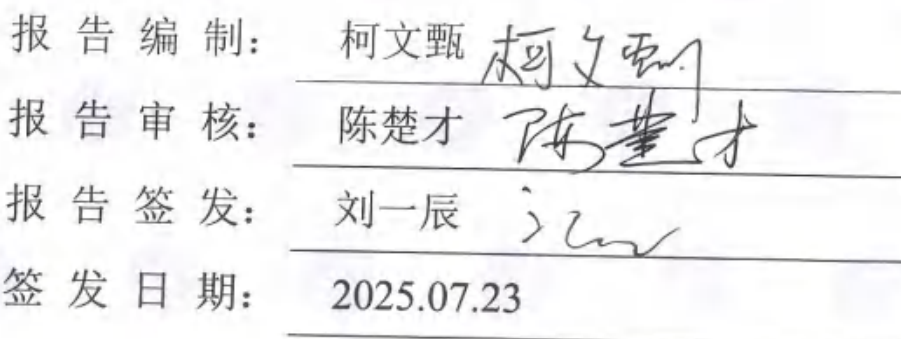 报告编制： 柯文甄 柯文甄
报告审核： 陈楚才 陈楚才
报告签发： 刘一辰
签发日期： 2025.07.23